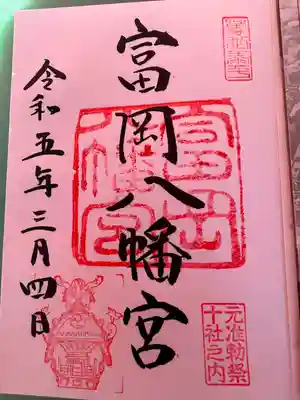 富岡八幡宮
令和五年三月四日
富岡八幡宮
元准勅祭
十社之内